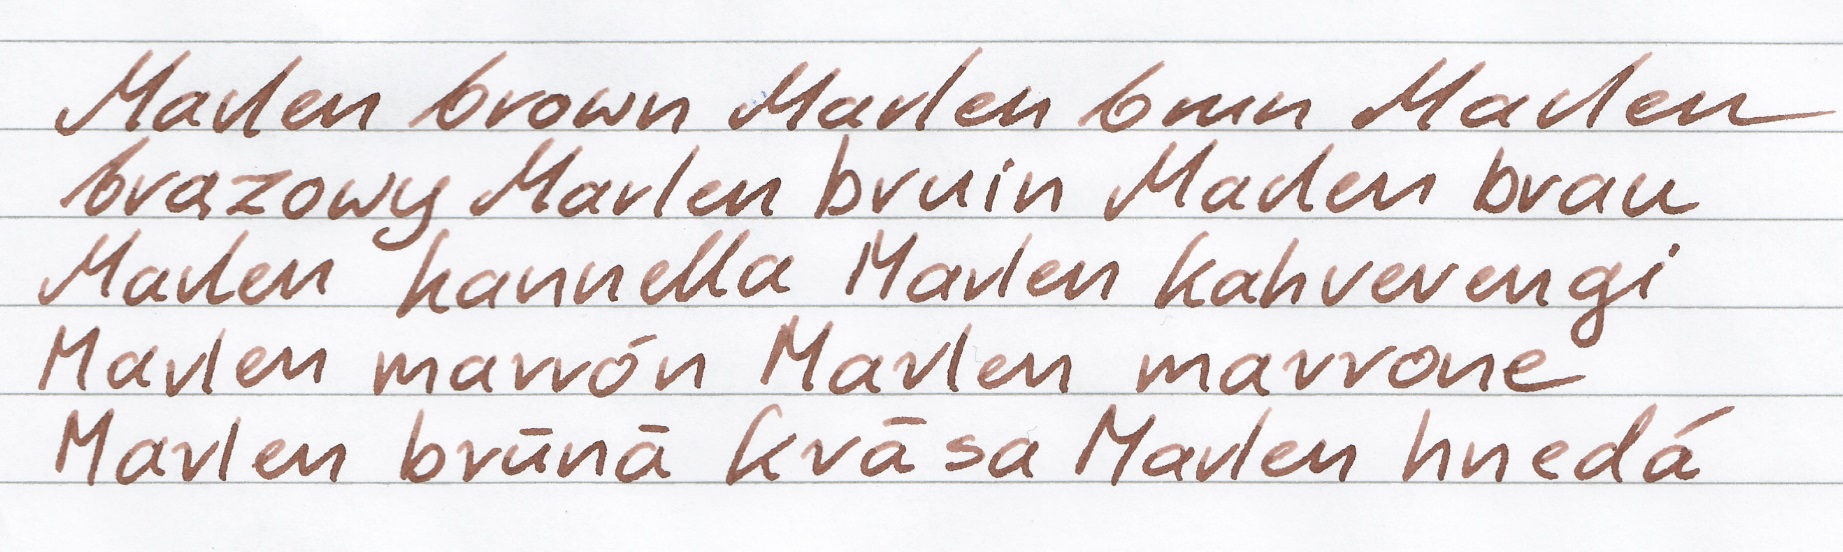 Marlen brown Marlen brun Marlen
brązowy Marlen bruin Marlen brau
Marlen kannella Marlen kahverengi
Marlen marrón Marlen marrone
Marlen brūnā krāsa Marlen hnedá